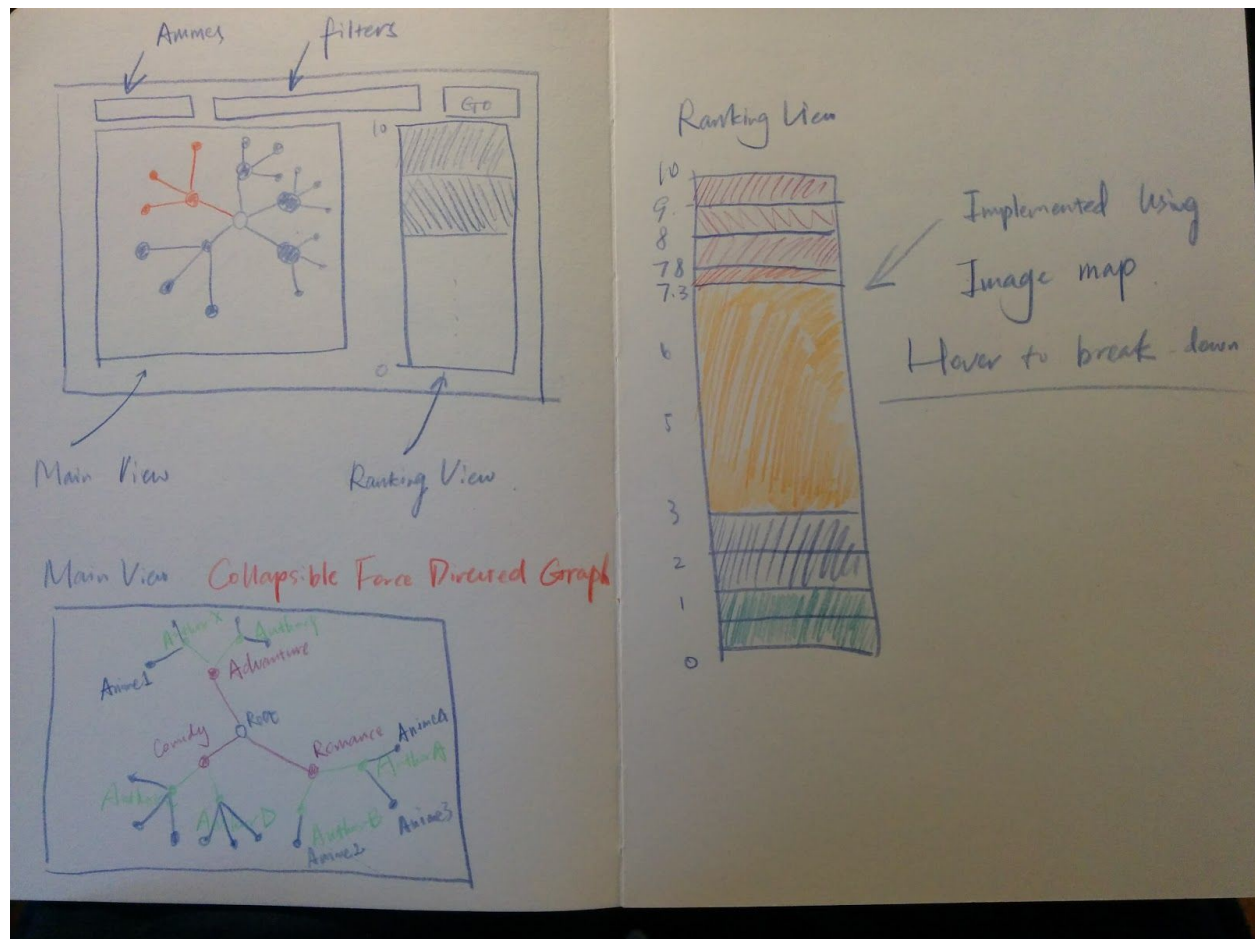 Ammes
filters
GO
10
0
Main View
Ranking View
Main View Collapsible Force Direcred Graph
Author X
Author Y
Anime1
Advanture
Root
Comidy
Romance
AnimeA
AuthorA
Author
AuthorD
AuthorB
Anime3
Anime2
Ranking View
10
9.
8
7.8
7.3
6
5
3
2
1
0
Implemented Using
Image map
Hover to break-down